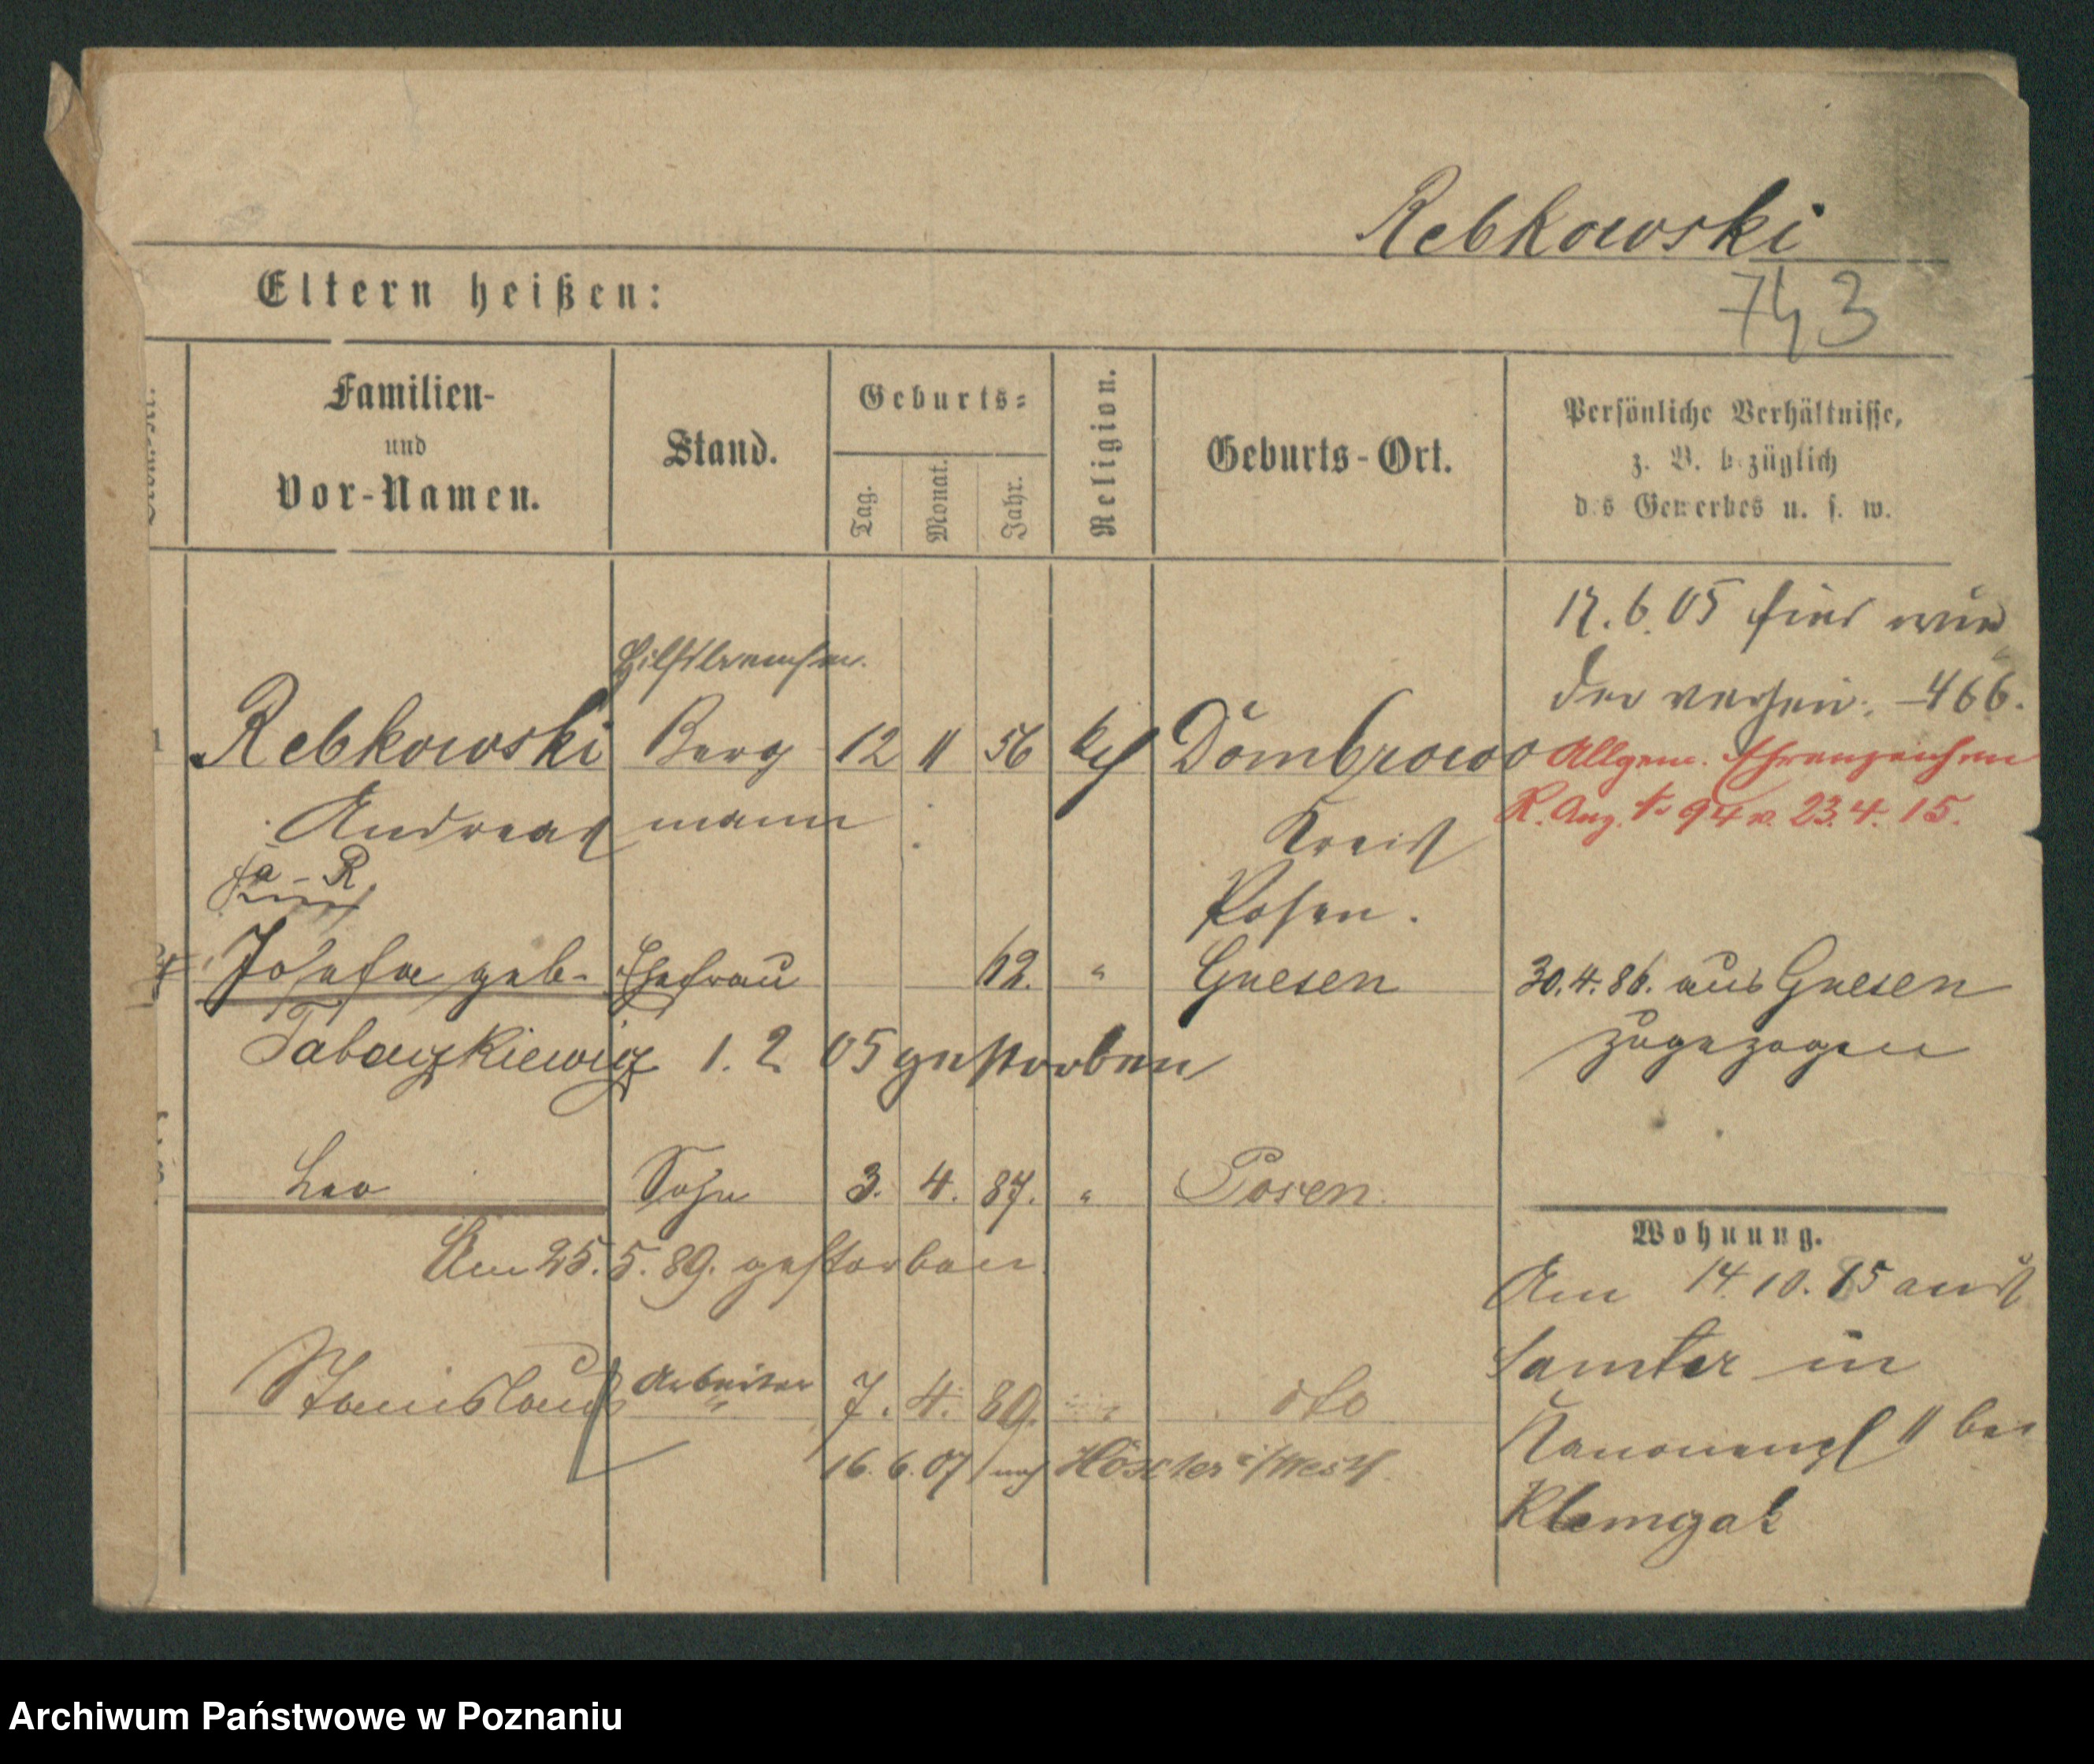 Rebkowski
743
Eltern heißen:
Familien-
und
Vor-Namen.
Stand.
Geburts-
Tag.
Monat.
Jahr.
Religion.
Geburts-Ort.
Persönliche Verhältnisse,
z. B. bezüglich
des Gewerbes u. s. w.
17.6.05 hier wie
der verhei. -466.
Rebkowski Berg 12 11 56 kth Dombrowo
Andreas mann Kreis
Posen.
Allgem. Ehrenzeichen
R. Anz. № 94 v. 23.4.15.
a - R
Josefa geb. Ehefrau 62. " Gnesen 30.4.86. aus Gnesen
zugezogen
1. 2 05 gestorben
Leo Sohn 3. 4. 87. " Posen.
Am 25.5.89. gestorben.
Wohnung.
Am 14.10.85 aus
Samter in
11 bei
Stanislaus Arbeiter 7. 4. 89. dto
16.6.07 nach Höxter i/Westf.